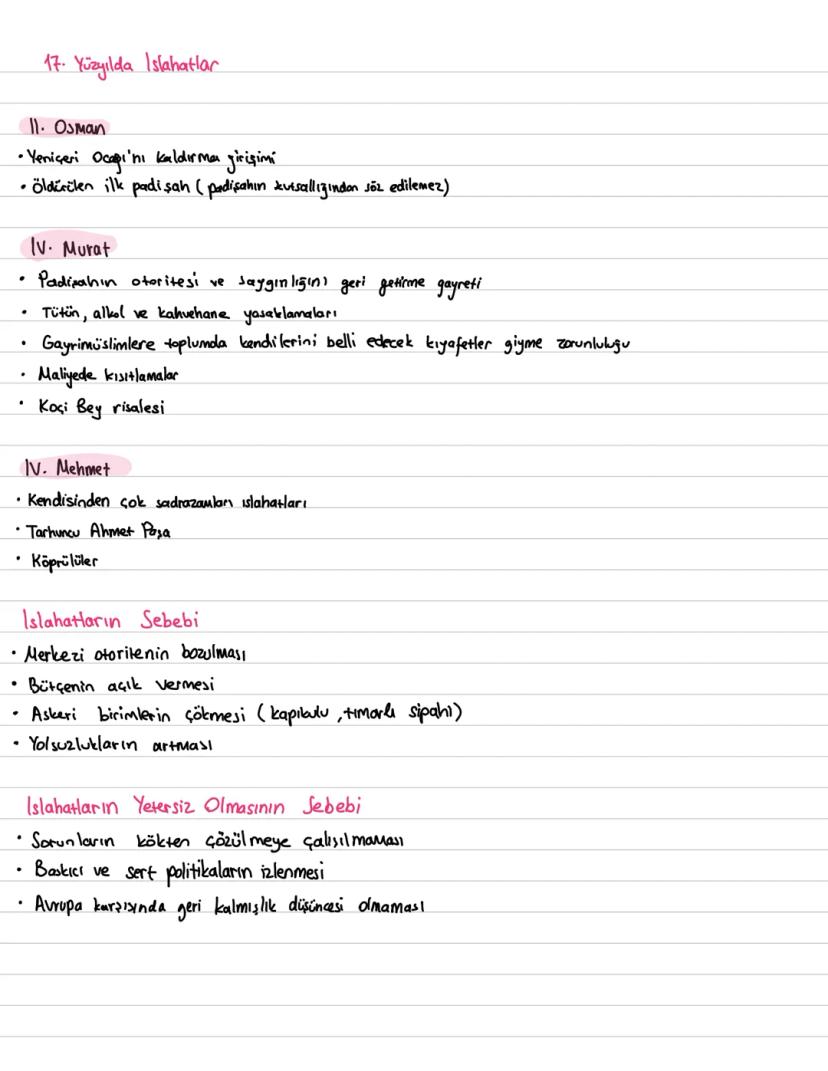 17. Yüzyılda Islahatlar
II. Osman
• Yeniçeri Ocağı'nı kaldırma girişimi
• Öldürülen ilk padişah ( padişahın kutsallığından söz edilemez)
IV. Murat
• Padişahın otoritesi ve saygınlığını geri getirme gayreti
• Tütün, alkol ve kahvehane yasaklamaları
• Gayrimüslimlere toplumda kendilerini belli edecek kıyafetler giyme zorunluluğu
• Maliyede kısıtlamalar
• Koçi Bey risalesi
IV. Mehmet
• Kendisinden çok sadrazamları ıslahatları
• Tarhuncu Ahmet Paşa
• Köprülüler
Islahatların Sebebi
• Merkezi otoritenin bozulması
• Bütçenin açık vermesi
• Askeri birimlerin çökmesi ( kapıkulu , tımarlı sipahi)
• Yolsuzlukların artması
Islahatların Yetersiz Olmasının Sebebi
• Sorunların kökten çözülmeye çalışılmaması
• Baskıcı ve sert politikaların izlenmesi
• Avrupa karşısında geri kalmışlık düşüncesi olmaması